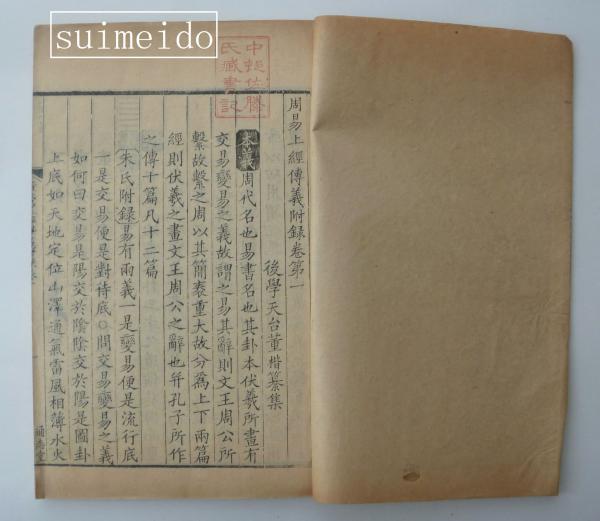 suimeido
中挃佐勝
氏藏書記
周易上經傳義附録卷第一
後學天台董楷纂集
本義周代名也易書名也其卦本伏羲所畫有
交易變易之義故謂之易其辭則文王周公所
繫故繫之周以其簡袠重大故分爲上下兩篇
經則伏羲之畫文王周公之辭也并孔子所作
之傳十篇凡十二篇
朱氏附録易有兩義一是變易便是流行底
一是交易便是對待底○問交易變易之義
如何曰交易是陽交於陰陰交於陽是圖卦
上底如天地定位山澤通氣雷風相薄水火